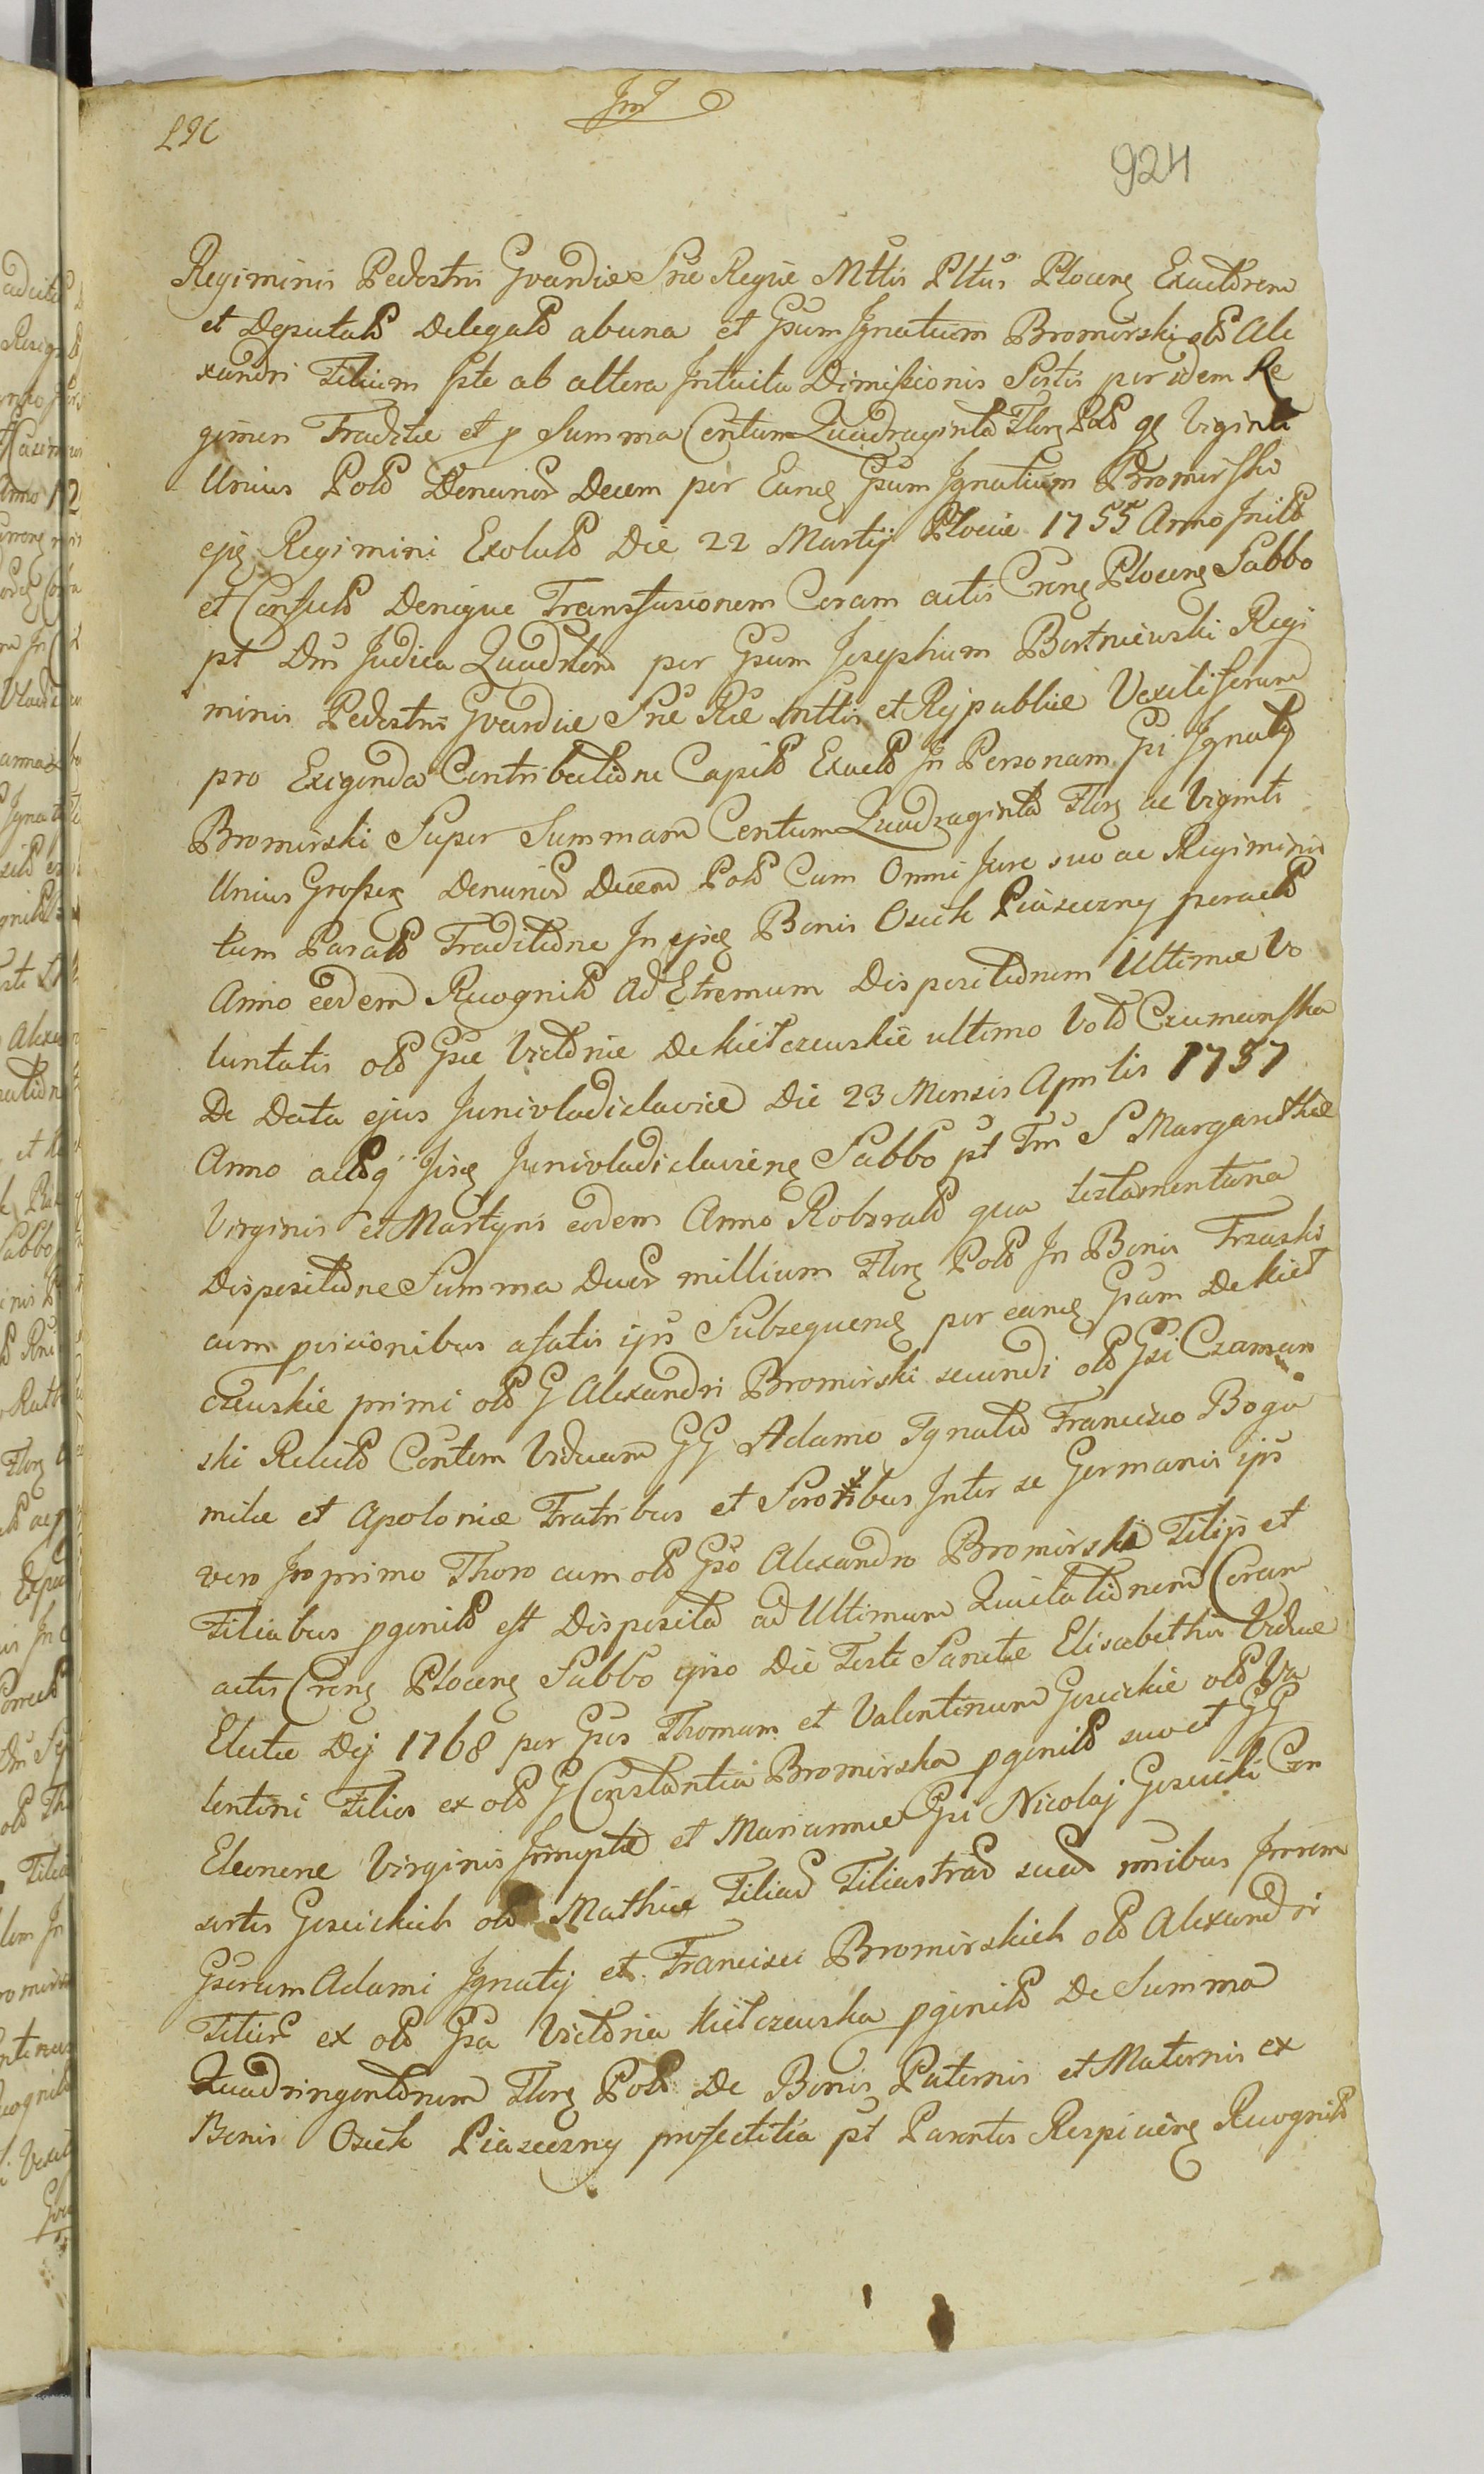 924
Regiminis Pedestris Gvardiæ Sræ Regiæ Mttis Pltus Plocen Exactorem
et Deputato Delegato ab una et Gsum Ignatium Bromirski olo Ale
xandri Filium pte ab altera Intuitu Dimissionis Sortis per idem Re
gimen Traditæ et p Summa Centum Quadraginta Flor Pol gr Viginti
Unius Polo Denarior Decem per Eund Gsum Ignatium Bromirski
ejs Regimini Exoluto Die 22 Martij Plociæ 1755 Anno Inito
et Confecto Denique Transfusionem Coram actis Cren Plocen Sabbo
pt Dm Judica Quadrlem per Gsum Josephum Bartniewski Regi
minis Pedestris Gvardiæ Sræ Ræ Mttis et Rejpublicæ Vexiliferum
pro Exigenda Contributione Capito Exacto In Personam Gsi Ignatij
Bromirski Super Summam Centum Quadraginta Flor ac Viginti
Unius Grossor Denarior Decem Polo Cum Omni Jure suo ac Regiminis
tum Parato Traditione In ejsd Bonis Osiek Piaseczny peracto
Anno eodem Recognito Ad Extremum Dispositionem Ultimæ Vo
luntatis olo Gsæ Victoriæ De Kiełczewskie ultimo Voto Czumanska
De Data ejus Junivladislaviæ Die 23 Mensis Aprilis 1737
Anno actisq Jisd Junivladislavien Sabbo pt Fm S Margarethæ
Virginis et Martyris eodem Anno Roborato qua testamentaria
Dispositione Summa Duor millium Flor Polo In Bonis Trzaski
cum provisionibus a fatis ips Subsequend per eand Gsam De Kieł
czewskie primi olo G Alexandri Bromirski secundi olo Gsi Czaman
ski Relicto Contem Viduam GG Adamo Ignatio Francisco Bogu
milæ et Apoloniæ Fratribus et Sororibus Inter se Germanis ips
vero In primo Thoro cum olo Gso Alexandro Bromirski Filijs et
Filiabus pgenito est Disposita ad Ultimum Quietationem Coram
actis Cren Plocen Sabbo ipso Die Festi Sanctæ Elisabethis Viduæ
Electæ Dej 1768 per Gsos Thomam et Valentinum Gosiickie olo Va
lentini Filios ex olo G Constantia Bromirska pgenito suo et GG
Eleonoræ Virginis Innuptæ et Mariannæ Gsi Nicolaj Gosiicki Con
sortis Gosiickich olo Mathiæ Filiar Filiastrar suar nnibus In rem
Gsorum Adami Ignatij et Francisci Bromirskich olo Alexandri
Filior ex olo Gsa Victoria Kiełczewska pgenito De Summa
Quadringentorum Flor Polo De Bonis Paternis et Maternis ex
Bonis Osiek Piaseczny profectitia pt Parentes Respicien Recognito